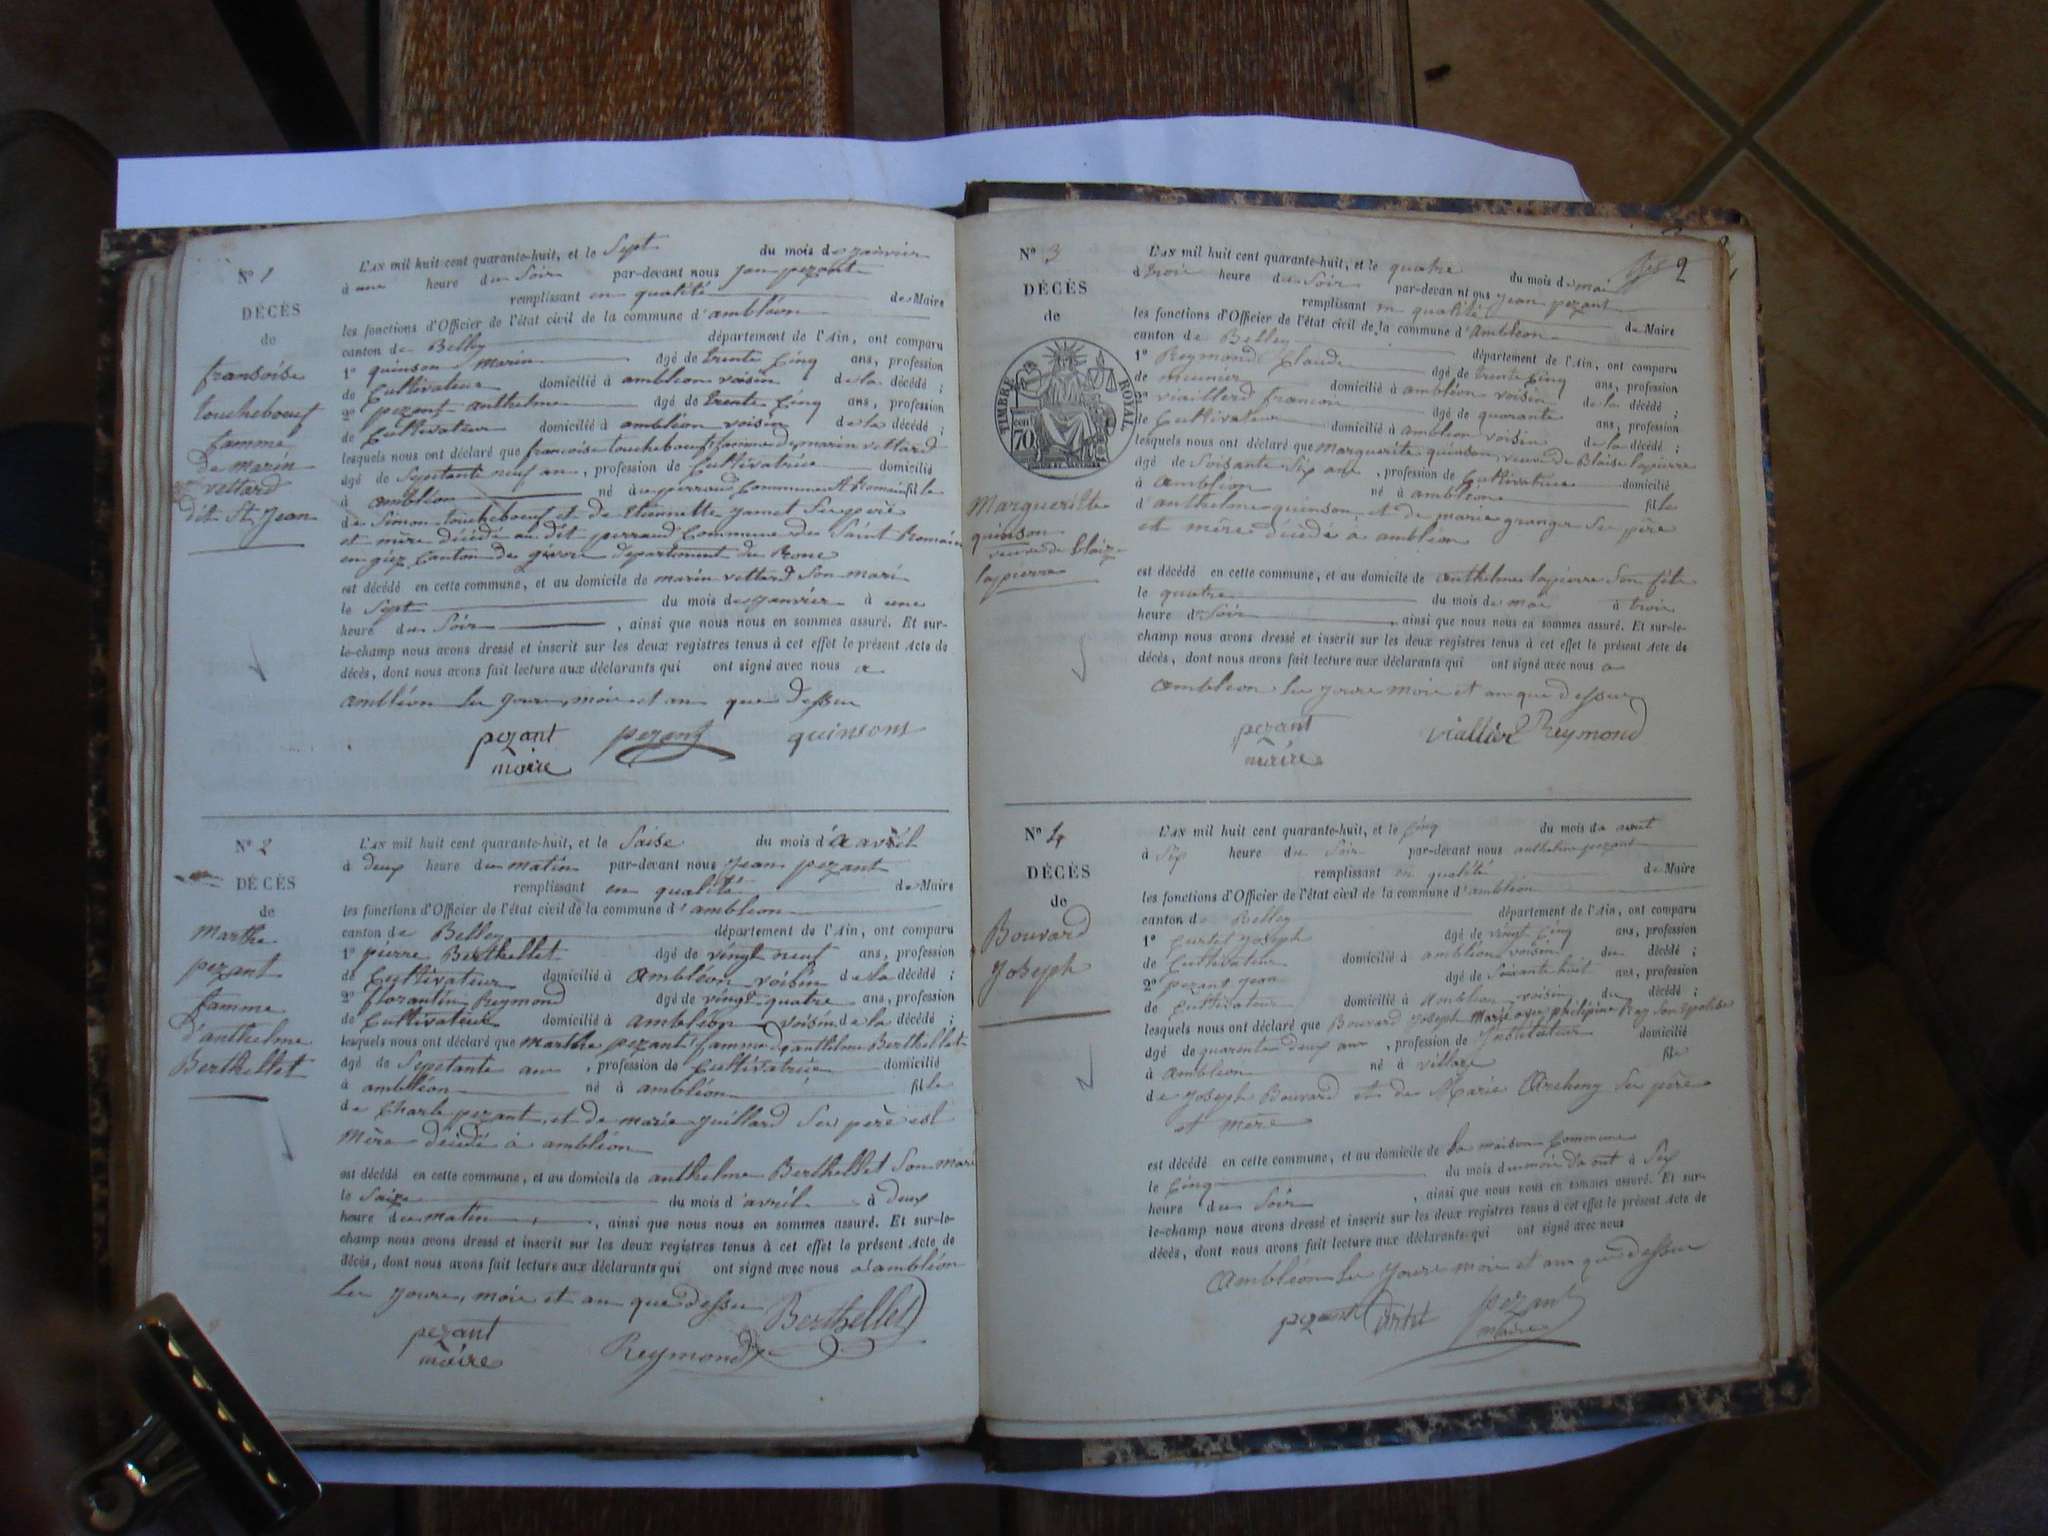 N° 1
DÉCÈS
de
fransoise
toucheboeuf
famme
de marin
vettard
dit St Jean
L'AN mil huit cent quarante-huit, et le Sept du mois de janvier
à une heure du Soir par-devant nous jean pezant
remplissant en qualité de Maire
les fonctions d'Officier de l'état civil de la commune d'ambléon
canton de Belley département de l'Ain, ont comparu
1° quinson marin âgé de trente Cinq ans, profession
de Cultivateur domicilié à ambléon voisin de la décédé ;
2° pezant anthelme âgé de trente Cinq ans, profession
de Cultivateur domicilié à ambléon voisin de la décédé ;
lesquels nous ont déclaré que francoise toucheboeuf famme de marin vettard
âgé de Septante neuf an, profession de Cultivatrice domicilié
à ambléon né à perraud Commune St Romain fille
de Simon toucheboeuf et de Etiennette jamet Ses père
et mère décédé au dit perraud Commune de Saint Romain
en giez Canton de givore departement du Rone
est décédé en cette commune, et au domicile de marin vettard Son mari
le Sept du mois de janvier à une
heure du Soir , ainsi que nous nous en sommes assuré. Et sur-
le-champ nous avons dressé et inscrit sur les deux registres tenus à cet effet le présent Acte de
décès, dont nous avons fait lecture aux déclarants qui ont signé avec nous a
ambléon les jours, mois et an que dessu
pezant pezant quinsons
maire
N° 2
DÉCÈS
de
Marthe
pezant
famme
d'anthelme
Berthellet
L'AN mil huit cent quarante-huit, et le Saise du mois d'avril
à deux heure du matin par-devant nous Jean pezant
remplissant en qualité de Maire
les fonctions d'Officier de l'état civil de la commune d'ambléon
canton de Belley département de l'Ain, ont comparu
1° pierre Berthellet âgé de vingt neuf ans, profession
de Cultivateur domicilié à Ambléon voisin de la décédé ;
2° florantin Reymond âgé de vingt quatre ans, profession
de Cultivateur domicilié à ambléon voisin de la décédé ;
lesquels nous ont déclaré que Marthe pezant famme d'anthelme Berthellet
âgé de Sepetante an , profession de Cultivatrice domicilié
à ambléon né à ambléon fille
de Charle pezant, et de marie juillard Ses père est
Mère décédé à ambléon
est décédé en cette commune, et au domicile de anthelme Berthellet Son mari
le Saize du mois d'avril à deux
heure du matin , ainsi que nous nous en sommes assuré. Et sur-le-
champ nous avons dressé et inscrit sur les deux registres tenus à cet effet le présent Acte de
décès, dont nous avons fait lecture aux déclarants qui ont signé avec nous a ambléon
les jours, mois et an que dessu Berthellet
pezant Reymond
maire
2
N° 3
DÉCÈS
de
TIMBRE ROYAL
70
Margueritte
quinson
veuve de blaize
lapierre
L'AN mil huit cent quarante-huit, et le quatre du mois de mai
à trois heure du Soir par-devant nous Jean pezant
remplissant en qualité de Maire
les fonctions d'Officier de l'état civil de la commune d'Ambleon
canton de Belley département de l'Ain, ont comparu
1° Reymond Claude âgé de trente Cinq ans, profession
de meunier domicilié à ambléon voisin de la décédé ;
2° viaillerd francois âgé de quarante ans, profession
de Cultivateur domicilié à ambléon voisin de la décédé ;
lesquels nous ont déclaré que Marguerite quinson, veuve de Blaise lapierre
âgé de Soisante Six ans , profession de Cultivatrice domicilié
à Ambléon né à ambléon fille
d'anthelme quinson et de marie granger Ses père
et mère décédé à ambléon
est décédé en cette commune, et au domicile de anthelme lapierre Son fils
le quatre du mois de mai à trois
heure du Soir , ainsi que nous nous en sommes assuré. Et sur-le-
champ nous avons dressé et inscrit sur les deux registres tenus à cet effet le présent Acte de
décès, dont nous avons fait lecture aux déclarants qui ont signé avec nous a
Ambleon les jours mois et an que dessu
pezant Reymond
maire
N° 4
DÉCÈS
de
Bouvard
Joseph
L'AN mil huit cent quarante-huit, et le Cinq du mois da out
à Six heure du Soir par-devant nous anthelme pezant
remplissant en qualité de Maire
les fonctions d'Officier de l'état civil de la commune d'ambléon
canton de Belley département de l'Ain, ont comparu
1° Curtet Joseph âgé de vingt Cinq ans, profession
de Cultivateur domicilié à ambléon voisin du décédé ;
2° pezant Jean âgé de Soixante huit ans, profession
de Cultivateur domicilié à Ambléon voisin du décédé ;
lesquels nous ont déclaré que Bouvard Joseph Marié avec philipine Rey Son épouse
âgé de quarente deux ans , profession de Instituteur domicilié
à Ambléon né à fils
de Joseph Bouvard et de Marie Ses père
et mère
est décédé en cette commune, et au domicile de la maison Commune
le Cinq du mois du mois da out à Six
heure du Soir , ainsi que nous nous en sommes assuré. Et sur-
le-champ nous avons dressé et inscrit sur les deux registres tenus à cet effet le présent Acte de
décès, dont nous avons fait lecture aux déclarants qui ont signé avec nous
Ambléon les jours mois et an que dessu
pezant Curtet pezant
maire